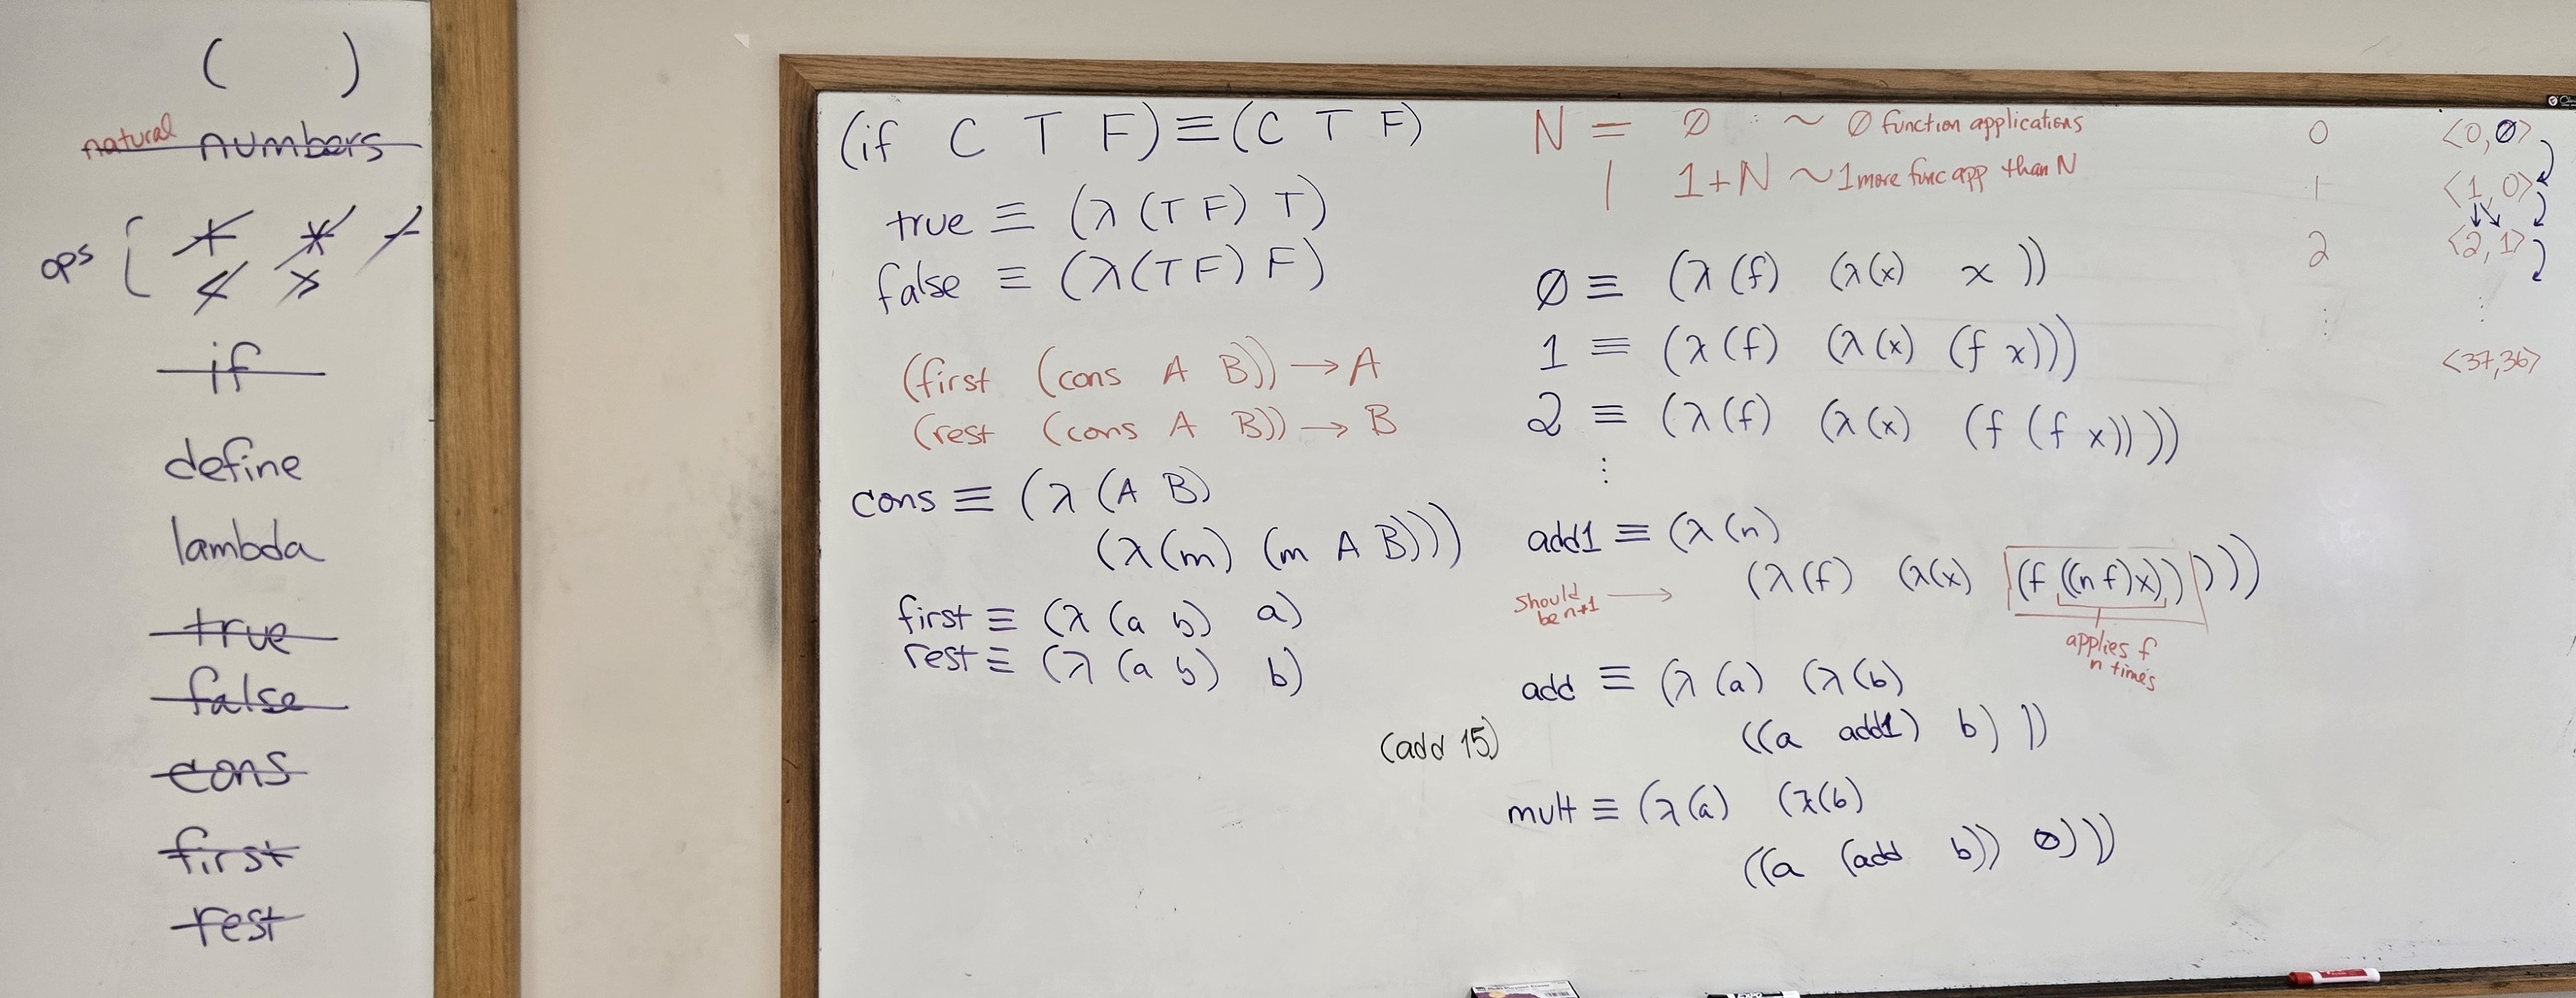 ( )
natural numbers
ops { + * -
< >
if
define
lambda
true
false
cons
first
rest
(if C T F) ≡ (C T F)
true ≡ (λ (T F) T)
false ≡ (λ (T F) F)
(first (cons A B)) → A
(rest (cons A B)) → B
cons ≡ (λ (A B)
(λ (m) (m A B)))
first ≡ (λ (a b) a)
rest ≡ (λ (a b) b)
(add 15)
N = Ø : ~ Ø function applications
| 1+N ~ 1 more func app than N
Ø ≡ (λ (f) (λ (x) x ))
1 ≡ (λ (f) (λ (x) (f x)))
2 ≡ (λ (f) (λ (x) (f (f x))))
⋮
add1 ≡ (λ (n)
should be n+1 → (λ (f) (λ (x) (f ((n f) x)))))
applies f
n times
add ≡ (λ (a) (λ (b)
((a add1) b) ))
mult ≡ (λ (a) (λ (b)
((a (add b)) Ø)))
0 <0, Ø>
1 <1, 0>
2 <2, 1>
⋮ ⋮
<37,36>